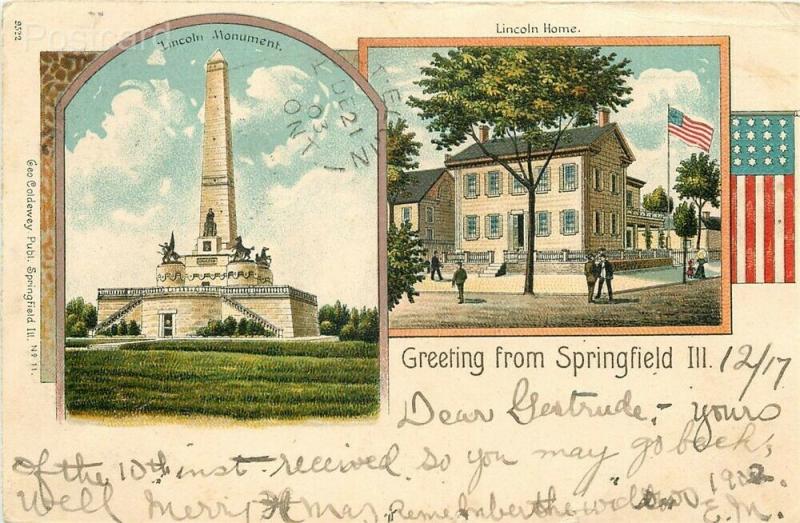 9522
Postcard
Lincoln Monument.
Lincoln Home.
DE 21
03
ONT
Geo Coldewey Publ. Springfield Ill. No 11.
Greeting from Springfield Ill. 12/17
Dear Gertrude,- yours
of the 10th inst-received so you may go back,
Well Merry Xmas, remember the
E.M.